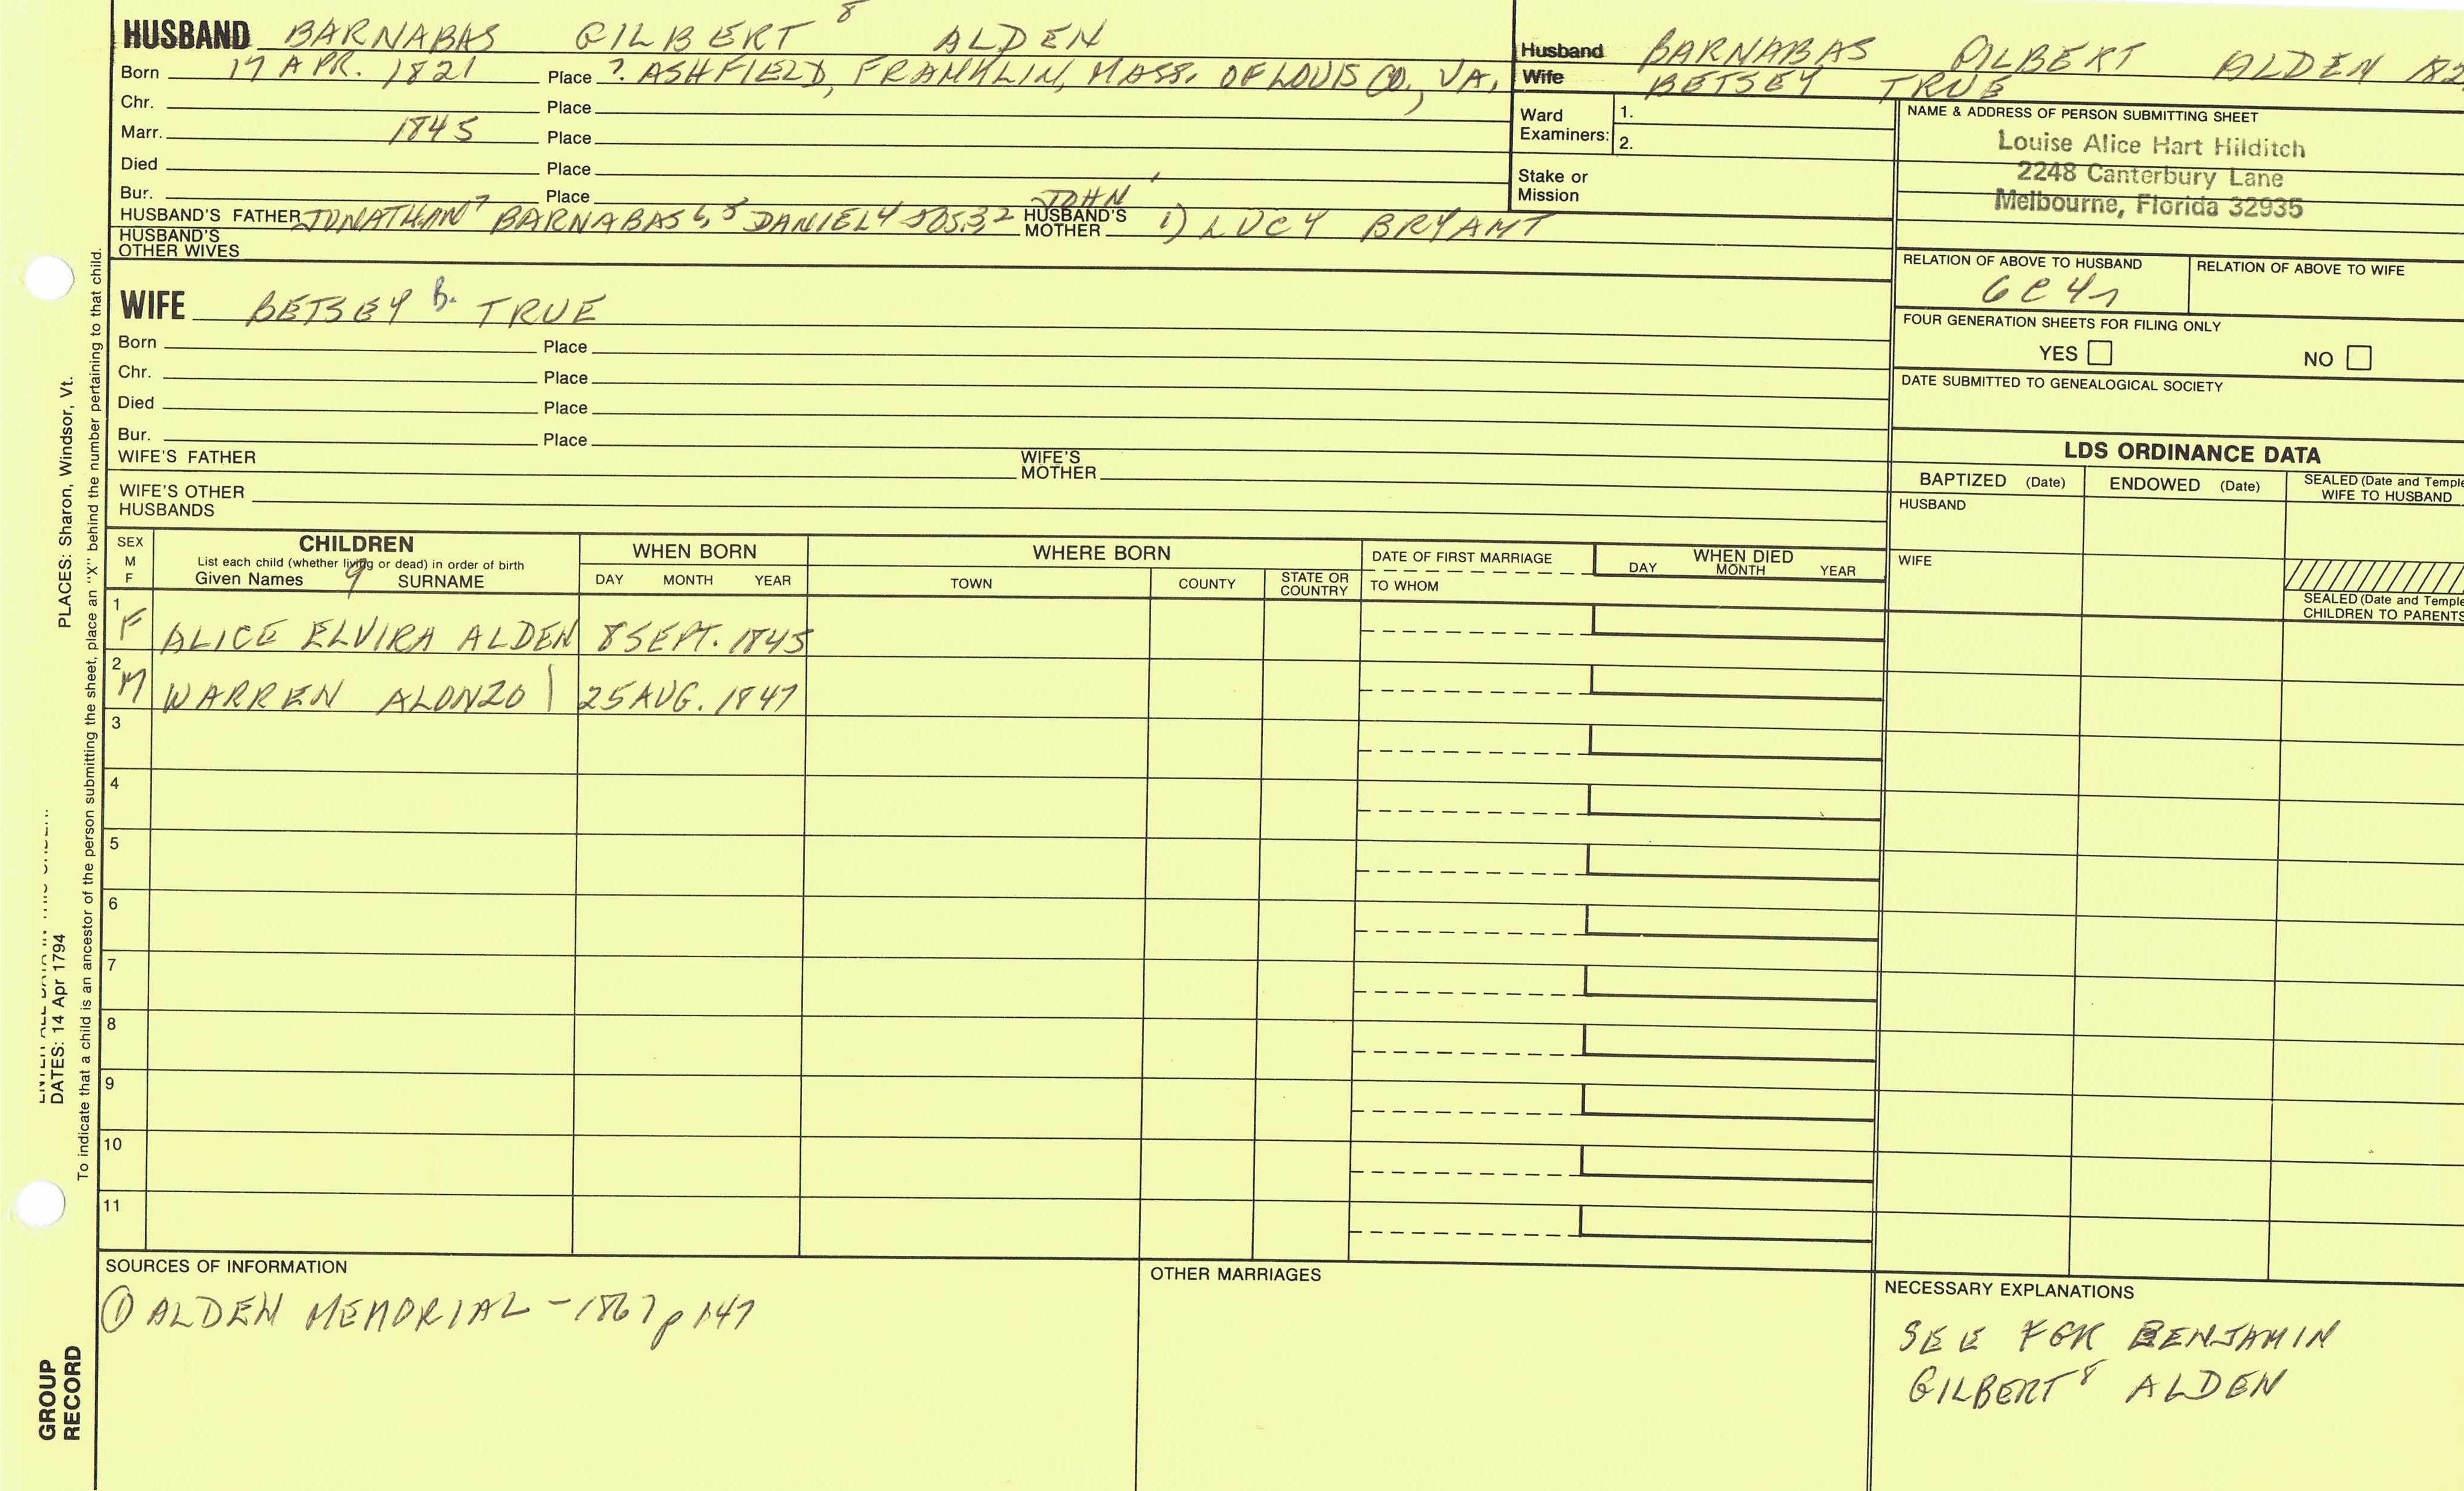 HUSBAND BARNABAS GILBERT 8 ALDEN
Born 17 APR. 1821 Place ? ASHFIELD, FRANKLIN, MASS. OF LOUIS CO., VA.
Chr. Place
Marr. 1845 Place
Died Place
Bur. Place
HUSBAND'S FATHER JONATHAN 7 BARNABAS 6,5 DANIEL 4 JOS. 3 2 JOHN 1 HUSBAND'S MOTHER 1) LUCY BRYANT
HUSBAND'S OTHER WIVES
Husband BARNABAS GILBERT ALDEN
Wife BETSEY TRUE
Ward Examiners: 1.
2.
Stake or Mission
NAME & ADDRESS OF PERSON SUBMITTING SHEET
Louise Alice Hart Hilditch
2248 Canterbury Lane
Melbourne, Florida 32935
RELATION OF ABOVE TO HUSBAND RELATION OF ABOVE TO WIFE
6C4r
FOUR GENERATION SHEETS FOR FILING ONLY
YES NO
DATE SUBMITTED TO GENEALOGICAL SOCIETY
WIFE BETSEY B. TRUE
Born Place
Chr. Place
Died Place
Bur. Place
WIFE'S FATHER WIFE'S MOTHER
WIFE'S OTHER HUSBANDS
LDS ORDINANCE DATA
BAPTIZED (Date) ENDOWED (Date) SEALED (Date and Temple
WIFE TO HUSBAND
HUSBAND
WIFE
SEALED (Date and Temple
CHILDREN TO PARENTS
SEX M F
CHILDREN
List each child (whether living or dead) in order of birth
Given Names 9 SURNAME
WHEN BORN
DAY MONTH YEAR
WHERE BORN
TOWN COUNTY STATE OR COUNTRY
DATE OF FIRST MARRIAGE
TO WHOM
WHEN DIED
DAY MONTH YEAR
1 F ALICE ELVIRA ALDEN 8 SEPT. 1845
2 M WARREN ALONZO 25 AUG. 1847
3
4
5
6
7
8
9
10
11
SOURCES OF INFORMATION
① ALDEN MEMORIAL - 1867 p 147
OTHER MARRIAGES
NECESSARY EXPLANATIONS
SEE FGR BENJAMIN
GILBERT 8 ALDEN
PLACES: Sharon, Windsor, Vt.
DATES: 14 Apr 1794
To indicate that a child is an ancestor of the person submitting the sheet, place an "X" behind the number pertaining to that child.
GROUP
RECORD